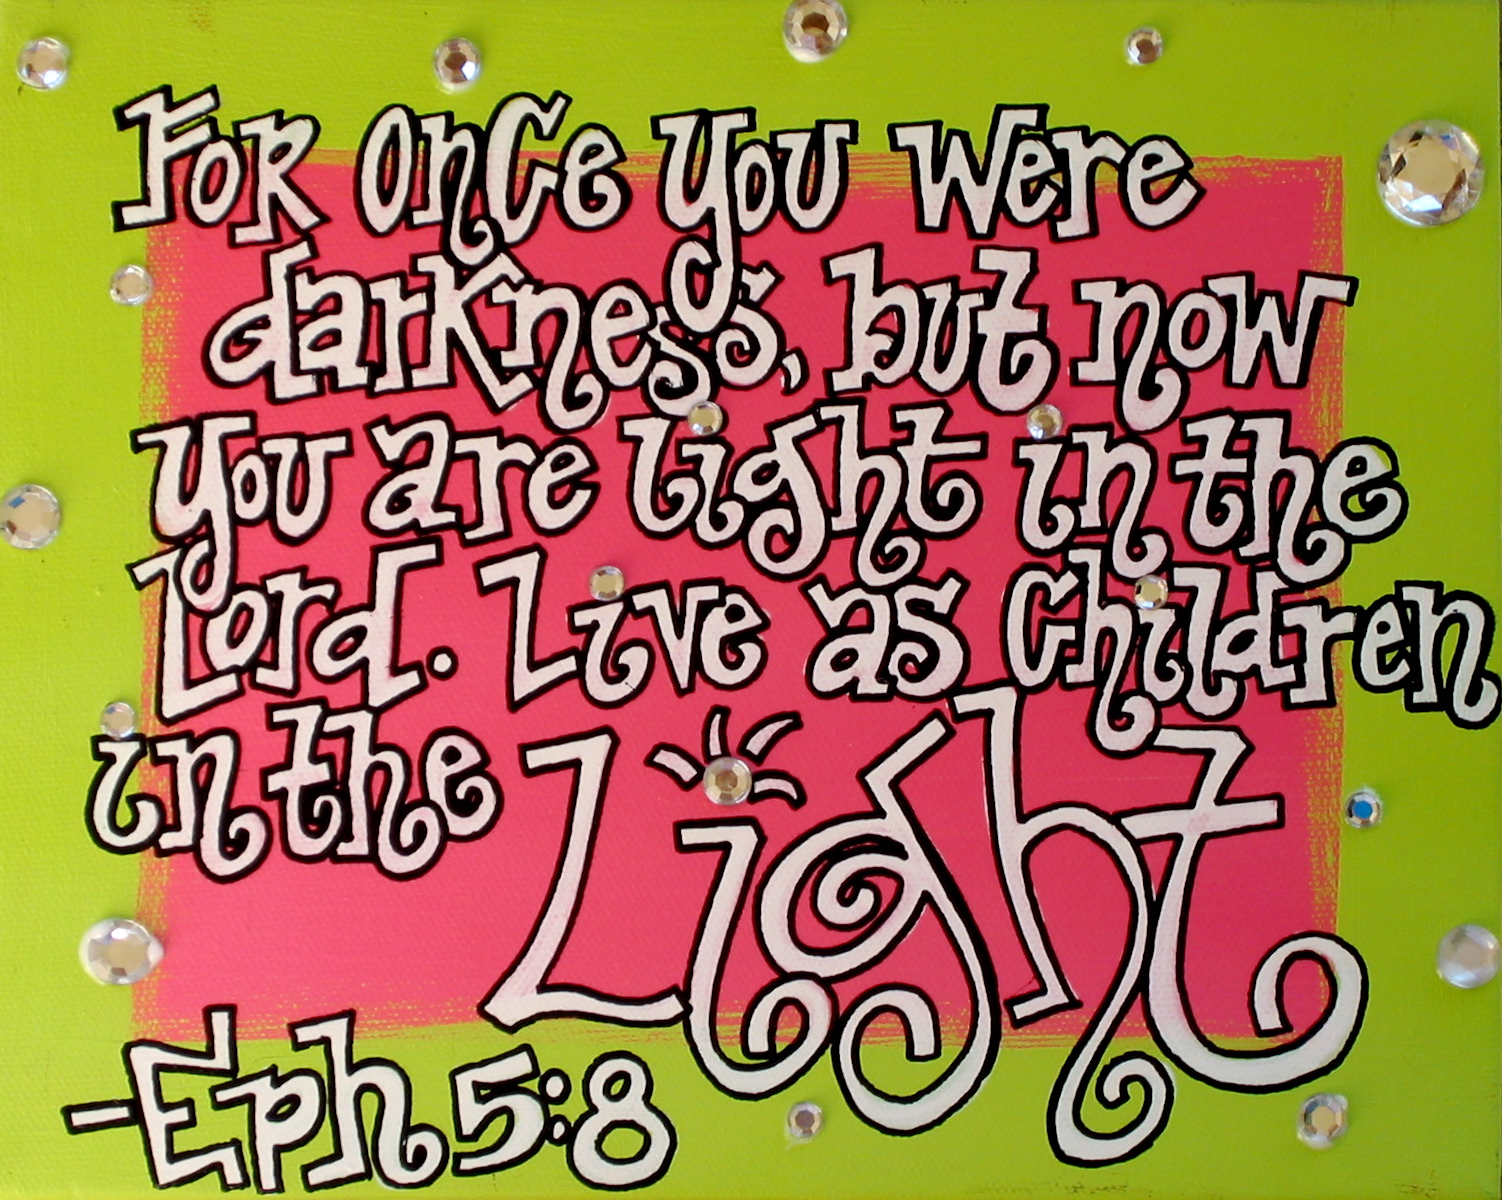 For once you were
darkness, but now
you are light in the
Lord. Live as Children
in the Light
-Eph 5:8